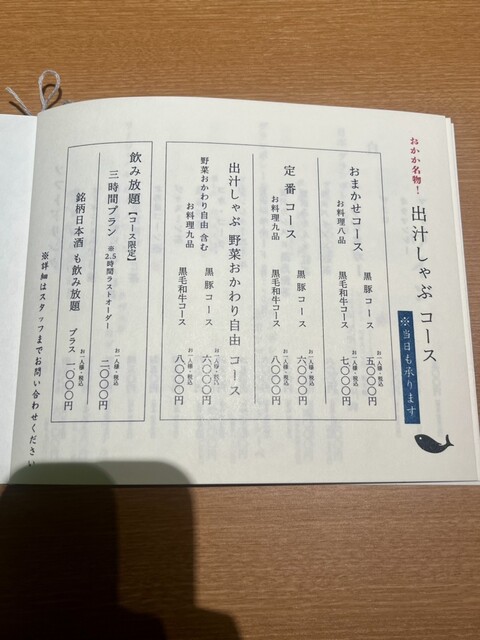 おかか名物！
出汁しゃぶ コース
※当日も承ります
おまかせコース
お料理八品
黒豚コース
お一人様・税込
五〇〇〇円
黒毛和牛コース
お一人様・税込
七〇〇〇円
定番 コース
お料理九品
黒豚コース
お一人様・税込
六〇〇〇円
黒毛和牛コース
お一人様・税込
八〇〇〇円
出汁しゃぶ 野菜おかわり自由 コース
野菜おかわり自由 含む
お料理九品
黒豚コース
お一人様・税込
六〇〇〇円
黒毛和牛コース
お一人様・税込
八〇〇〇円
飲み放題【コース限定】
三時間プラン ※2.5時間ラストオーダー
お一人様・税込
二〇〇〇円
銘柄日本酒 も飲み放題
お一人様・税込
プラス 一〇〇〇円
※詳細はスタッフまでお問い合わせください